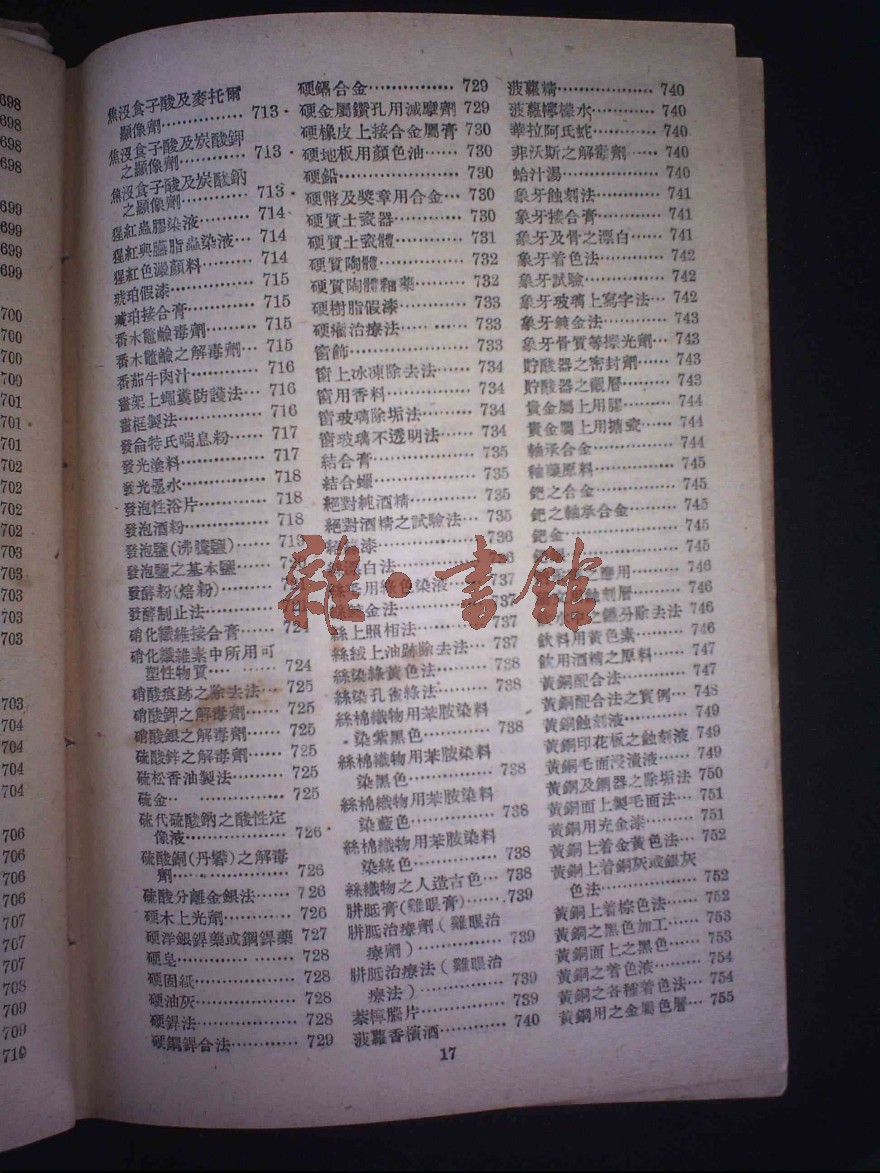 698
698
698
698
699
699
699
700
700
700
700
701
701
702
702
702
703
703
703
703
704
704
704
704
706
706
706
707
707
707
708
709
709
710
焦沒食子酸及麥托爾
顯像劑 713
焦沒食子酸及炭酸鉀
之顯像劑 713
焦沒食子酸及炭酸鈉
之顯像劑 713
猩紅蟲膠染液 714
猩紅與臙脂蟲染液 714
猩紅色澱顏料 714
琥珀假漆 715
琥珀接合膏 715
番木鼈鹼毒劑 715
番木鼈鹼之解毒劑 715
番茄牛肉汁 716
畫架上蠅糞防護法 716
畫框製法 716
發侖特氏喘息粉 717
發光塗料 717
發光墨水 718
發泡性浴片 718
發泡酒粉 718
發泡鹽(沸騰鹽) 719
發泡鹽之基本鹽 720
發酵粉(焙粉)
發酵制止法
硝化纖維接合膏 724
硝化纖維素中所用可
塑性物質 724
硝酸痕跡之除去法 725
硝酸鉀之解毒劑 725
硝酸銀之解毒劑 725
硫酸鋅之解毒劑 725
硫松香油製法 725
硫金 725
硫代硫酸鈉之酸性定
像液 726
硫酸銅(丹礬)之解毒
劑 726
硫酸分離金銀法 726
硬木上光劑 726
硬洋銀銲藥或鋼銲藥 727
硬皂 728
硬固紙 728
硬油灰 728
硬銲法 728
硬鋼銲合法 729
硬鎘合金 729
硬金屬鑽孔用減摩劑 729
硬橡皮上接合金屬膏 730
硬地板用顏色油 730
硬鉛 730
硬幣及獎章用合金 730
硬質土瓷器 730
硬質土瓷體 731
硬質陶體 732
硬質陶體釉藥 732
硬樹脂假漆 733
硬瘡治療法 733
窗飾 733
窗上冰凍除去法 734
窗用香料 734
窗玻璃除垢法 734
窗玻璃不透明法 734
結合膏 735
結合螺 735
絕對純酒精 735
絕對酒精之試驗法 735
漆 736
絲漂白法 736
絲毛用綠色染液 737
絲鍍金法 737
絲上照相法 737
絲絨上油跡除去法 737
絲染綠黃色法 738
絲染孔雀綠法 738
絲棉織物用苯胺染料
染紫黑色 738
絲棉織物用苯胺染料
染黑色 738
絲棉織物用苯胺染料
染藍色 738
絲棉織物用苯胺染料
染綠色 738
絲織物之人造古色 738
胼胝膏(雞眼膏) 739
胼胝治療劑(雞眼治
療劑) 739
胼胝治療法(雞眼治
療法) 739
萘檸腦片 739
菠蘿香檳酒 740
菠蘿精 740
菠蘿檸檬水 740
華拉阿氏蛇 740
菲沃斯之解毒劑 740
蛤汁湯 740
象牙蝕刻法 741
象牙接合膏 741
象牙及骨之漂白 741
象牙着色法 742
象牙試驗 742
象牙玻璃上寫字法 742
象牙鍍金法 743
象牙骨質等擦光劑 743
貯酸器之密封劑 743
貯酸器之襯層 743
貴金屬上用膠 744
貴金屬上用搪瓷 744
軸承合金 744
釉藥原料 745
鈀之合金 745
鈀之軸承合金 745
鈀金 745
745
之應用 746
蝕刻層 746
之鹽分除去法 746
飲料用黃色素 746
飲用酒精之原料 747
黃銅配合法 747
黃銅配合法之實例 748
黃銅蝕刻液 749
黃銅印花板之蝕刻液 749
黃銅毛面浸漬液 749
黃銅及鋼器之除垢法 750
黃銅面上製毛面法 751
黃銅用充金漆 751
黃銅上着金黃色法 752
黃銅上着銅灰或銀灰
色法 752
黃銅上着棕色法 752
黃銅之黑色加工 753
黃銅面上之黑色 753
黃銅之着色液 754
黃銅之各種着色法 754
黃銅用之金屬色層 755
17
雜·書館